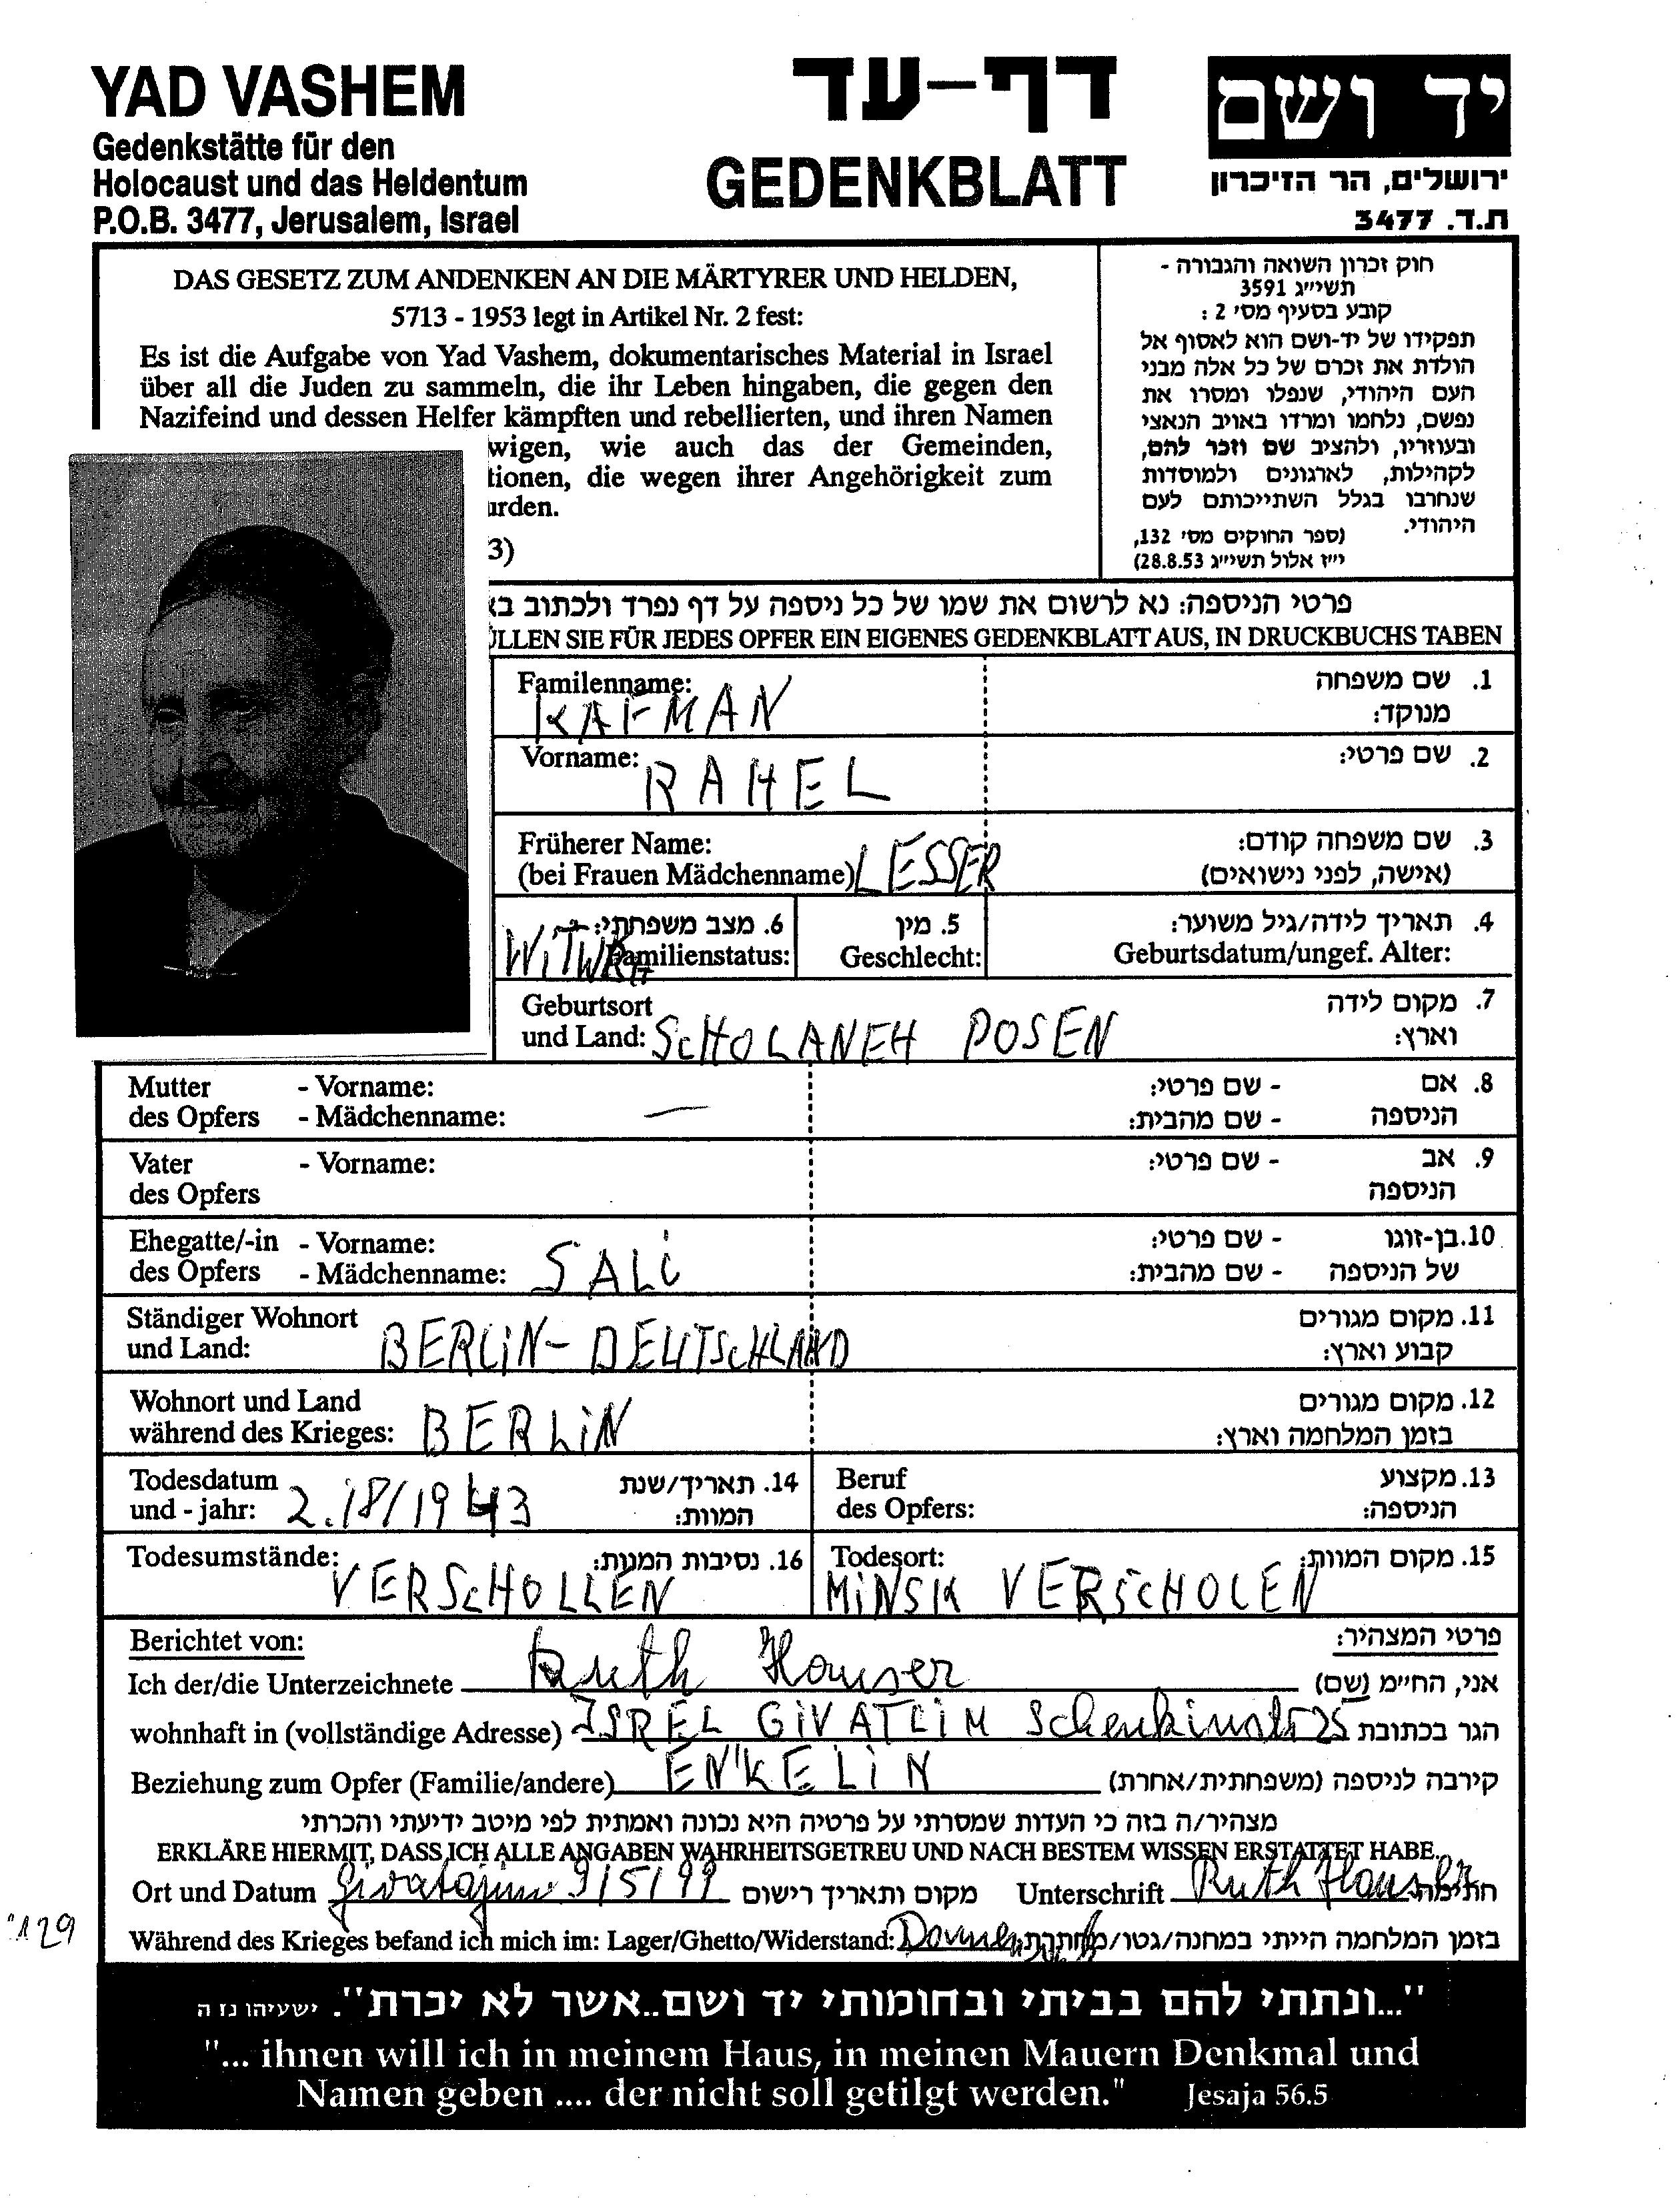 YAD VASHEM
Gedenkstätte für den
Holocaust und das Heldentum
P.O.B. 3477, Jerusalem, Israel
דף-עד
GEDENKBLATT
יד ושם
ירושלים, הר הזיכרון
ת.ד. 3477
DAS GESETZ ZUM ANDENKEN AN DIE MÄRTYRER UND HELDEN,
5713 - 1953 legt in Artikel Nr. 2 fest:
Es ist die Aufgabe von Yad Vashem, dokumentarisches Material in Israel
über all die Juden zu sammeln, die ihr Leben hingaben, die gegen den
Nazifeind und dessen Helfer kämpften und rebellierten, und ihren Namen
wigen, wie auch das der Gemeinden,
tionen, die wegen ihrer Angehörigkeit zum
urden.
3)
חוק זכרון השואה והגבורה -
תשי"ג 3591
קובע בסעיף מס' 2 :
תפקידו של יד-ושם הוא לאסוף אל
הולדת את זכרם של כל אלה מבני
העם היהודי, שנפלו ומסרו את
נפשם, נלחמו ומרדו באויב הנאצי
ובעוזריו, ולהציב שם וזכר להם,
לקהילות, לארגונים ולמוסדות
שנחרבו בגלל השתייכותם לעם
היהודי.
(ספר החוקים מס' 132,
י"ז אלול תשי"ג 28.8.53)
פרטי הניספה: נא לרשום את שמו של כל ניספה על דף נפרד ולכתוב בכ
ÜLLEN SIE FÜR JEDES OPFER EIN EIGENES GEDENKBLATT AUS, IN DRUCKBUCHS TABEN
Familenname: KAFMAN 1. שם משפחה
מנוקד:
Vorname: RAHEL 2. שם פרטי:
Früherer Name: 3. שם משפחה קודם:
(bei Frauen Mädchenname) LESSER (אישה, לפני נישואים)
6. מצב משפחתי: 5. מין 4. תאריך לידה/גיל משוער:
WITWE Familienstatus: Geschlecht: Geburtsdatum/ungef. Alter:
Geburtsort 7. מקום לידה
und Land: SCHOLANEH POSEN וארץ:
Mutter - Vorname: - שם פרטי: 8. אם
des Opfers - Mädchenname: — - שם מהבית: הניספה
Vater - Vorname: - שם פרטי: 9. אב
des Opfers הניספה
Ehegatte/-in - Vorname: - שם פרטי: 10.בן-זוגו
des Opfers - Mädchenname: SALi - שם מהבית: של הניספה
Ständiger Wohnort 11. מקום מגורים
und Land: BERLiN - DEUTSCHLAND קבוע וארץ:
Wohnort und Land 12. מקום מגורים
während des Krieges: BERLiN בזמן המלחמה וארץ:
Todesdatum 14. תאריך/שנת Beruf 13.מקצוע
und - jahr: 2./8/1943 המוות: des Opfers: הניספה:
Todesumstände: 16. נסיבות המוות: Todesort: 15. מקום המוות:
VERSCHOLLEN MiNSK VERSCHOLEN
Berichtet von: פרטי המצהיר:
Ich der/die Unterzeichnete Ruth Hauser אני, החי"מ (שם)
wohnhaft in (vollständige Adresse) ISREL GiVATLiM 25 הגר בכתובת
Beziehung zum Opfer (Familie/andere) ENKELiN קירבה לניספה (משפחתית/אחרת)
מצהיר/ה בזה כי העדות שמסרתי על פרטיה היא נכונה ואמתית לפי מיטב ידיעתי והכרתי
ERKLÄRE HIERMIT, DASS ICH ALLE ANGABEN WAHRHEITSGETREU UND NACH BESTEM WISSEN ERSTATTET HABE.
Ort und Datum 9/5/99 מקום ותאריך רישום Unterschrift Ruth Hauser חתימה
Während des Krieges befand ich mich im: Lager/Ghetto/Widerstand: בזמן המלחמה הייתי במחנה/גטו/מחתרת:
129
"...ונתתי להם בביתי ובחומותי יד ושם..אשר לא יכרת". ישעיהו נז ה
"... ihnen will ich in meinem Haus, in meinen Mauern Denkmal und
Namen geben .... der nicht soll getilgt werden." Jesaja 56.5